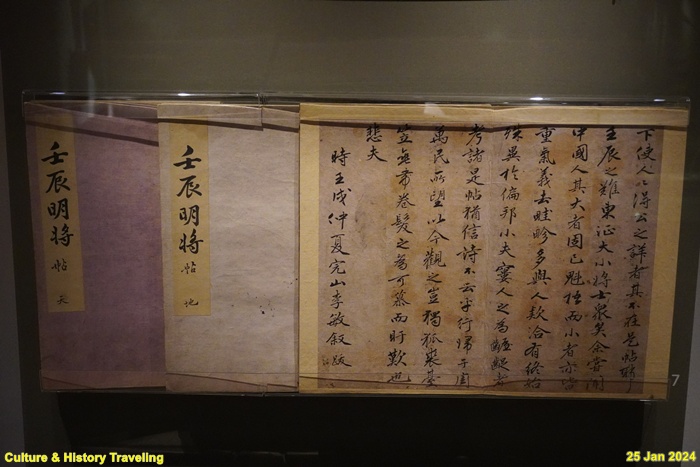 壬辰明將帖 天
壬辰明將帖 地
下使人人得公之詳者其不在是帖歟
壬辰之難東征大小將士衆矣余嘗聞
中國人其大者固已魁梧而小者亦皆
重氣義去畦畛多與人款洽有終始
殊異於偏邦小夫寠人之為齷齪者
考諸是帖猶信詩不云乎行歸于周
萬民所望以今觀之豈獨狐裘臺
笠垂帶卷髮之為可慕而盱歎也
悲夫
時壬戌仲夏完山李敏敘跋
7
Culture & History Traveling
25 Jan 2024